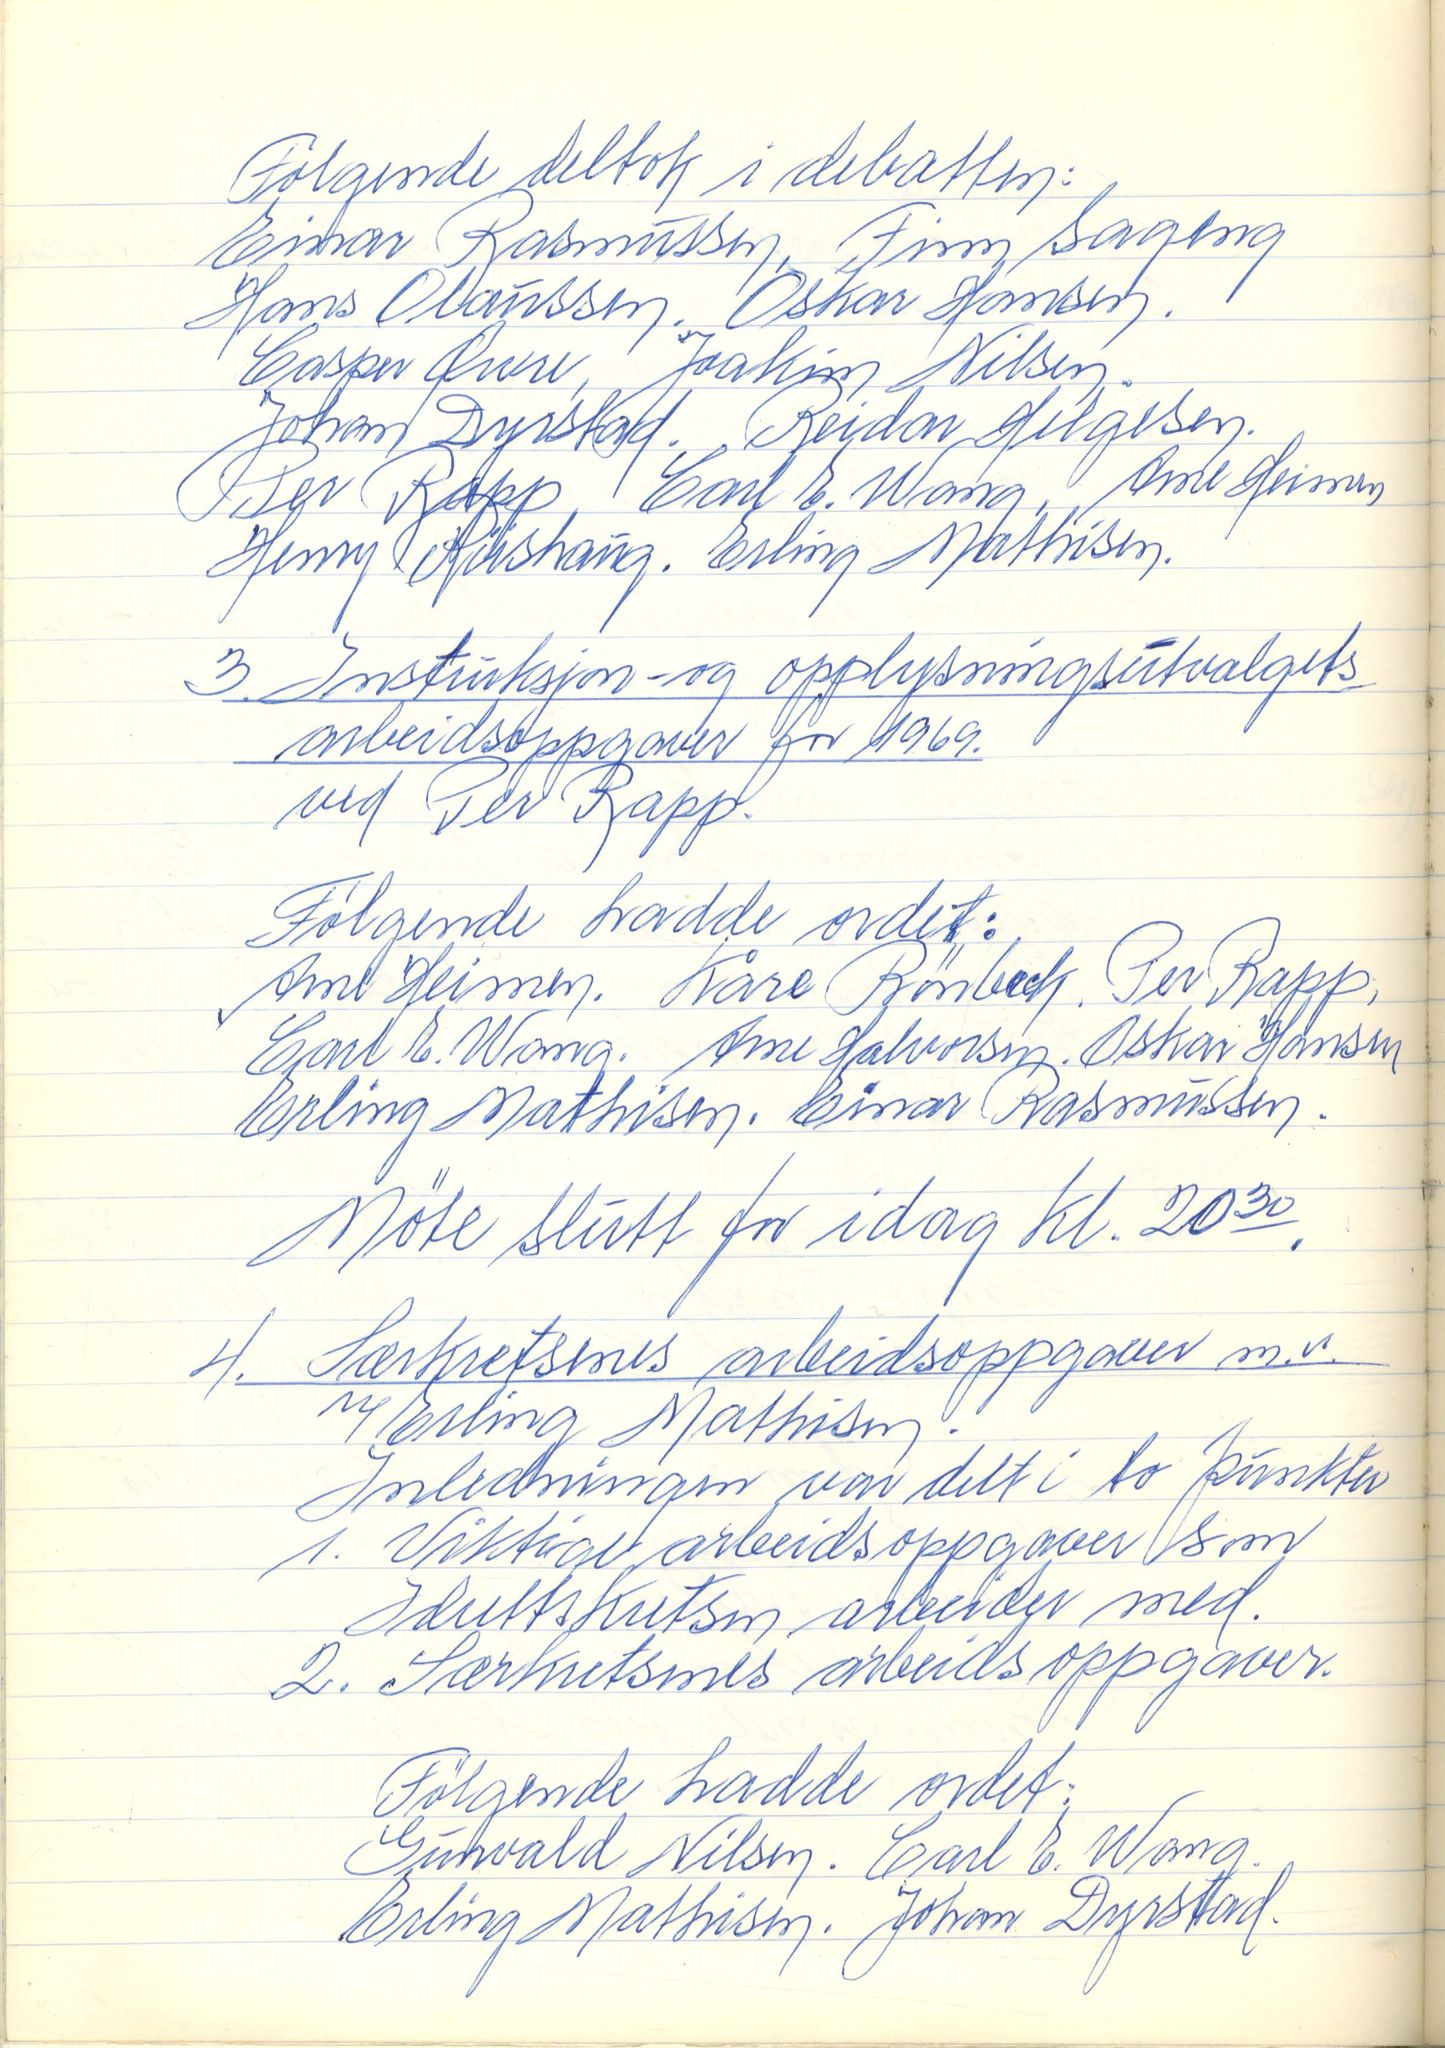 Følgende deltok i debatten:
Einar Rasmussen, Finn Sageng
Hans Olaussen. Oskar Hansen.
Casper Øvre, Joakim Nilsen.
Johan Dyrstad. Reidar Helgesen.
Per Rapp, Carl E. Wang, Arne Heimen
Henry. Erling Mathisen.
3. Instruksjon- og opplysningsutvalgets
arbeidsoppgaver for 1969.
ved Per Rapp.
Følgende hadde ordet:
Arne Heimen. Kåre Rönbeck. Per Rapp,
Carl E. Wang. Arne Halvorsen. Oskar Hansen
Erling Mathisen. Einar Rasmussen.
Möte slutt for idag kl. 20³⁰.
4. Særkretsenes arbeidsoppgaver m.v.
v/ Erling Mathisen.
Inledningen var delt i to punkter
1. Viktige arbeidsoppgaver som
Idrettskretsen arbeider med.
2. Særkretsenes arbeidsoppgaver.
Følgende hadde ordet:
Gunvald Nilsen. Carl E. Wang.
Erling Mathisen. Johan Dyrstad.